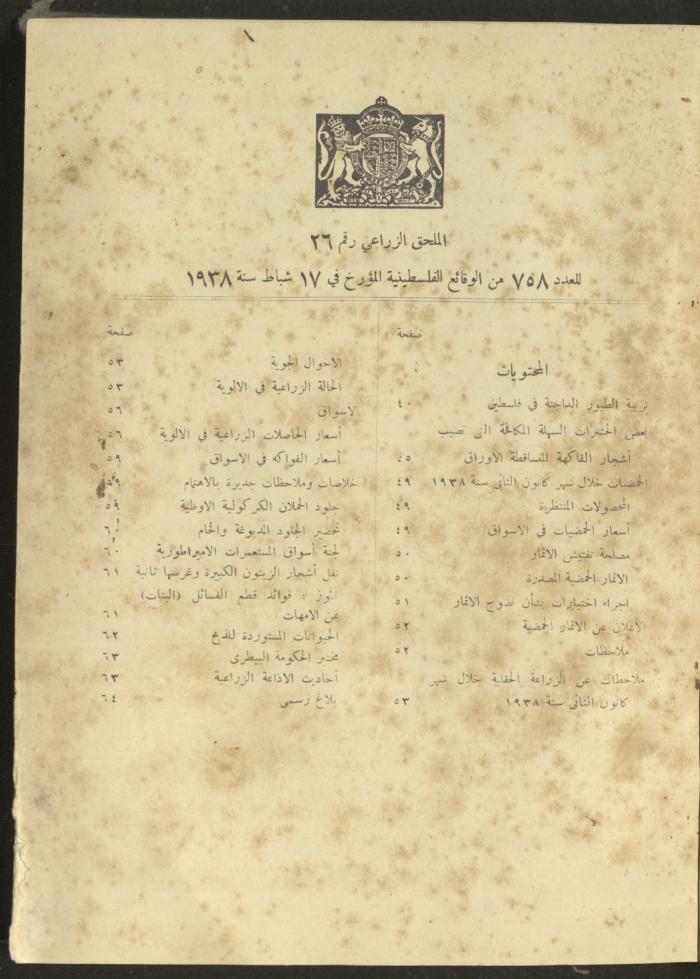 الملحق الزراعي رقم ٢٦
للعدد ٧٥٨ من الوقائع الفلسطينية المؤرخ في ١٧ شباط سنة ١٩٣٨
صفحة
المحتويات
تربية الطيور الداجنة في فلسطين ٤٠
بعض الحشرات السهلة المكافحة التي تصيب
أشجار الفاكهة المتساقطة الاوراق ٤٥
الحمضيات خلال شهر كانون الثاني سنة ١٩٣٨ ٤٩
المحصولات المنتظرة ٤٩
أسعار الحمضيات في الاسواق ٤٩
مصلحة تفتيش الاثمار ٥٠
الاثمار الحمضية المصدرة ٥٠
اجراء اختبارات بشأن نضوج الاثمار ٥١
الاعلان عن الاثمار الحمضية ٥٢
ملاحظات ٥٢
ملاحظات عن الزراعة الحقلية خلال شهر
كانون الثاني سنة ١٩٣٨ ٥٣
صفحة
الاحوال الجوية ٥٣
الحالة الزراعية في الالوية ٥٣
الاسواق ٥٦
أسعار الحاصلات الزراعية في الالوية ٥٦
أسعار الفواكه في الاسواق ٥٩
خلاصات وملاحظات جديرة بالاهتمام ٥٩
جلود الحملان الكركولية الاوظية ٥٩
تحضير الجلود المدبوغة والخام ٦٠
لجنة أسواق المستعمرات الامبراطورية ٦٠
نقل أشجار الزيتون الكبيرة وغرسها ثانية ٦١
الموز : فوائد قطع الفسائل (البنات)
عن الامهات ٦١
الحيوانات المستوردة للذبح ٦٢
مختبر الحكومة البيطري ٦٣
أحاديث الاذاعة الزراعية ٦٣
بلاغ رسمي ٦٤